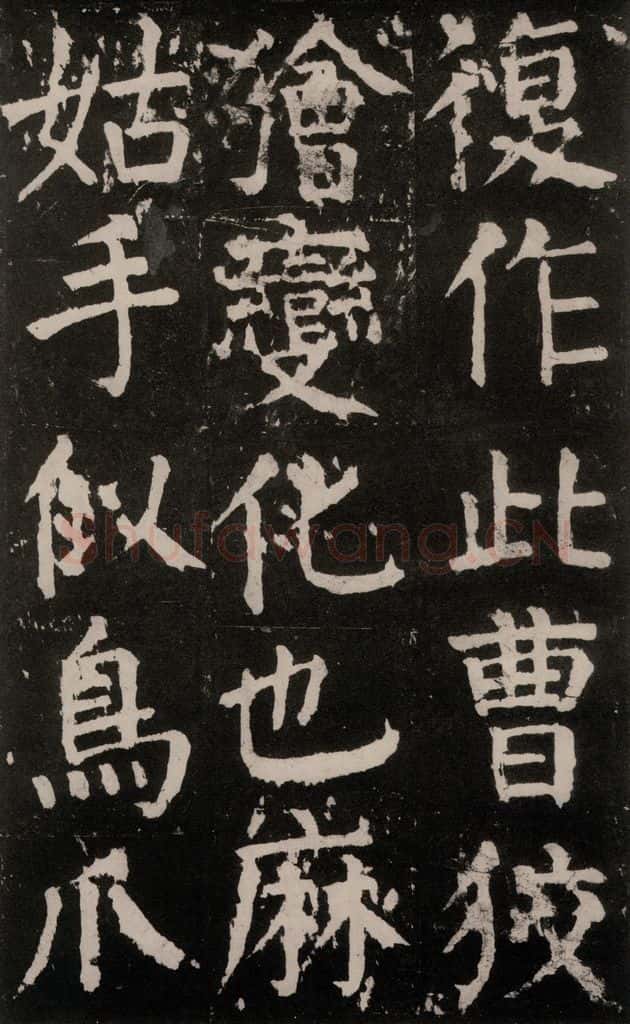 復作此曹狡
獪變化也麻
姑手似鳥爪
Shufawang.CN